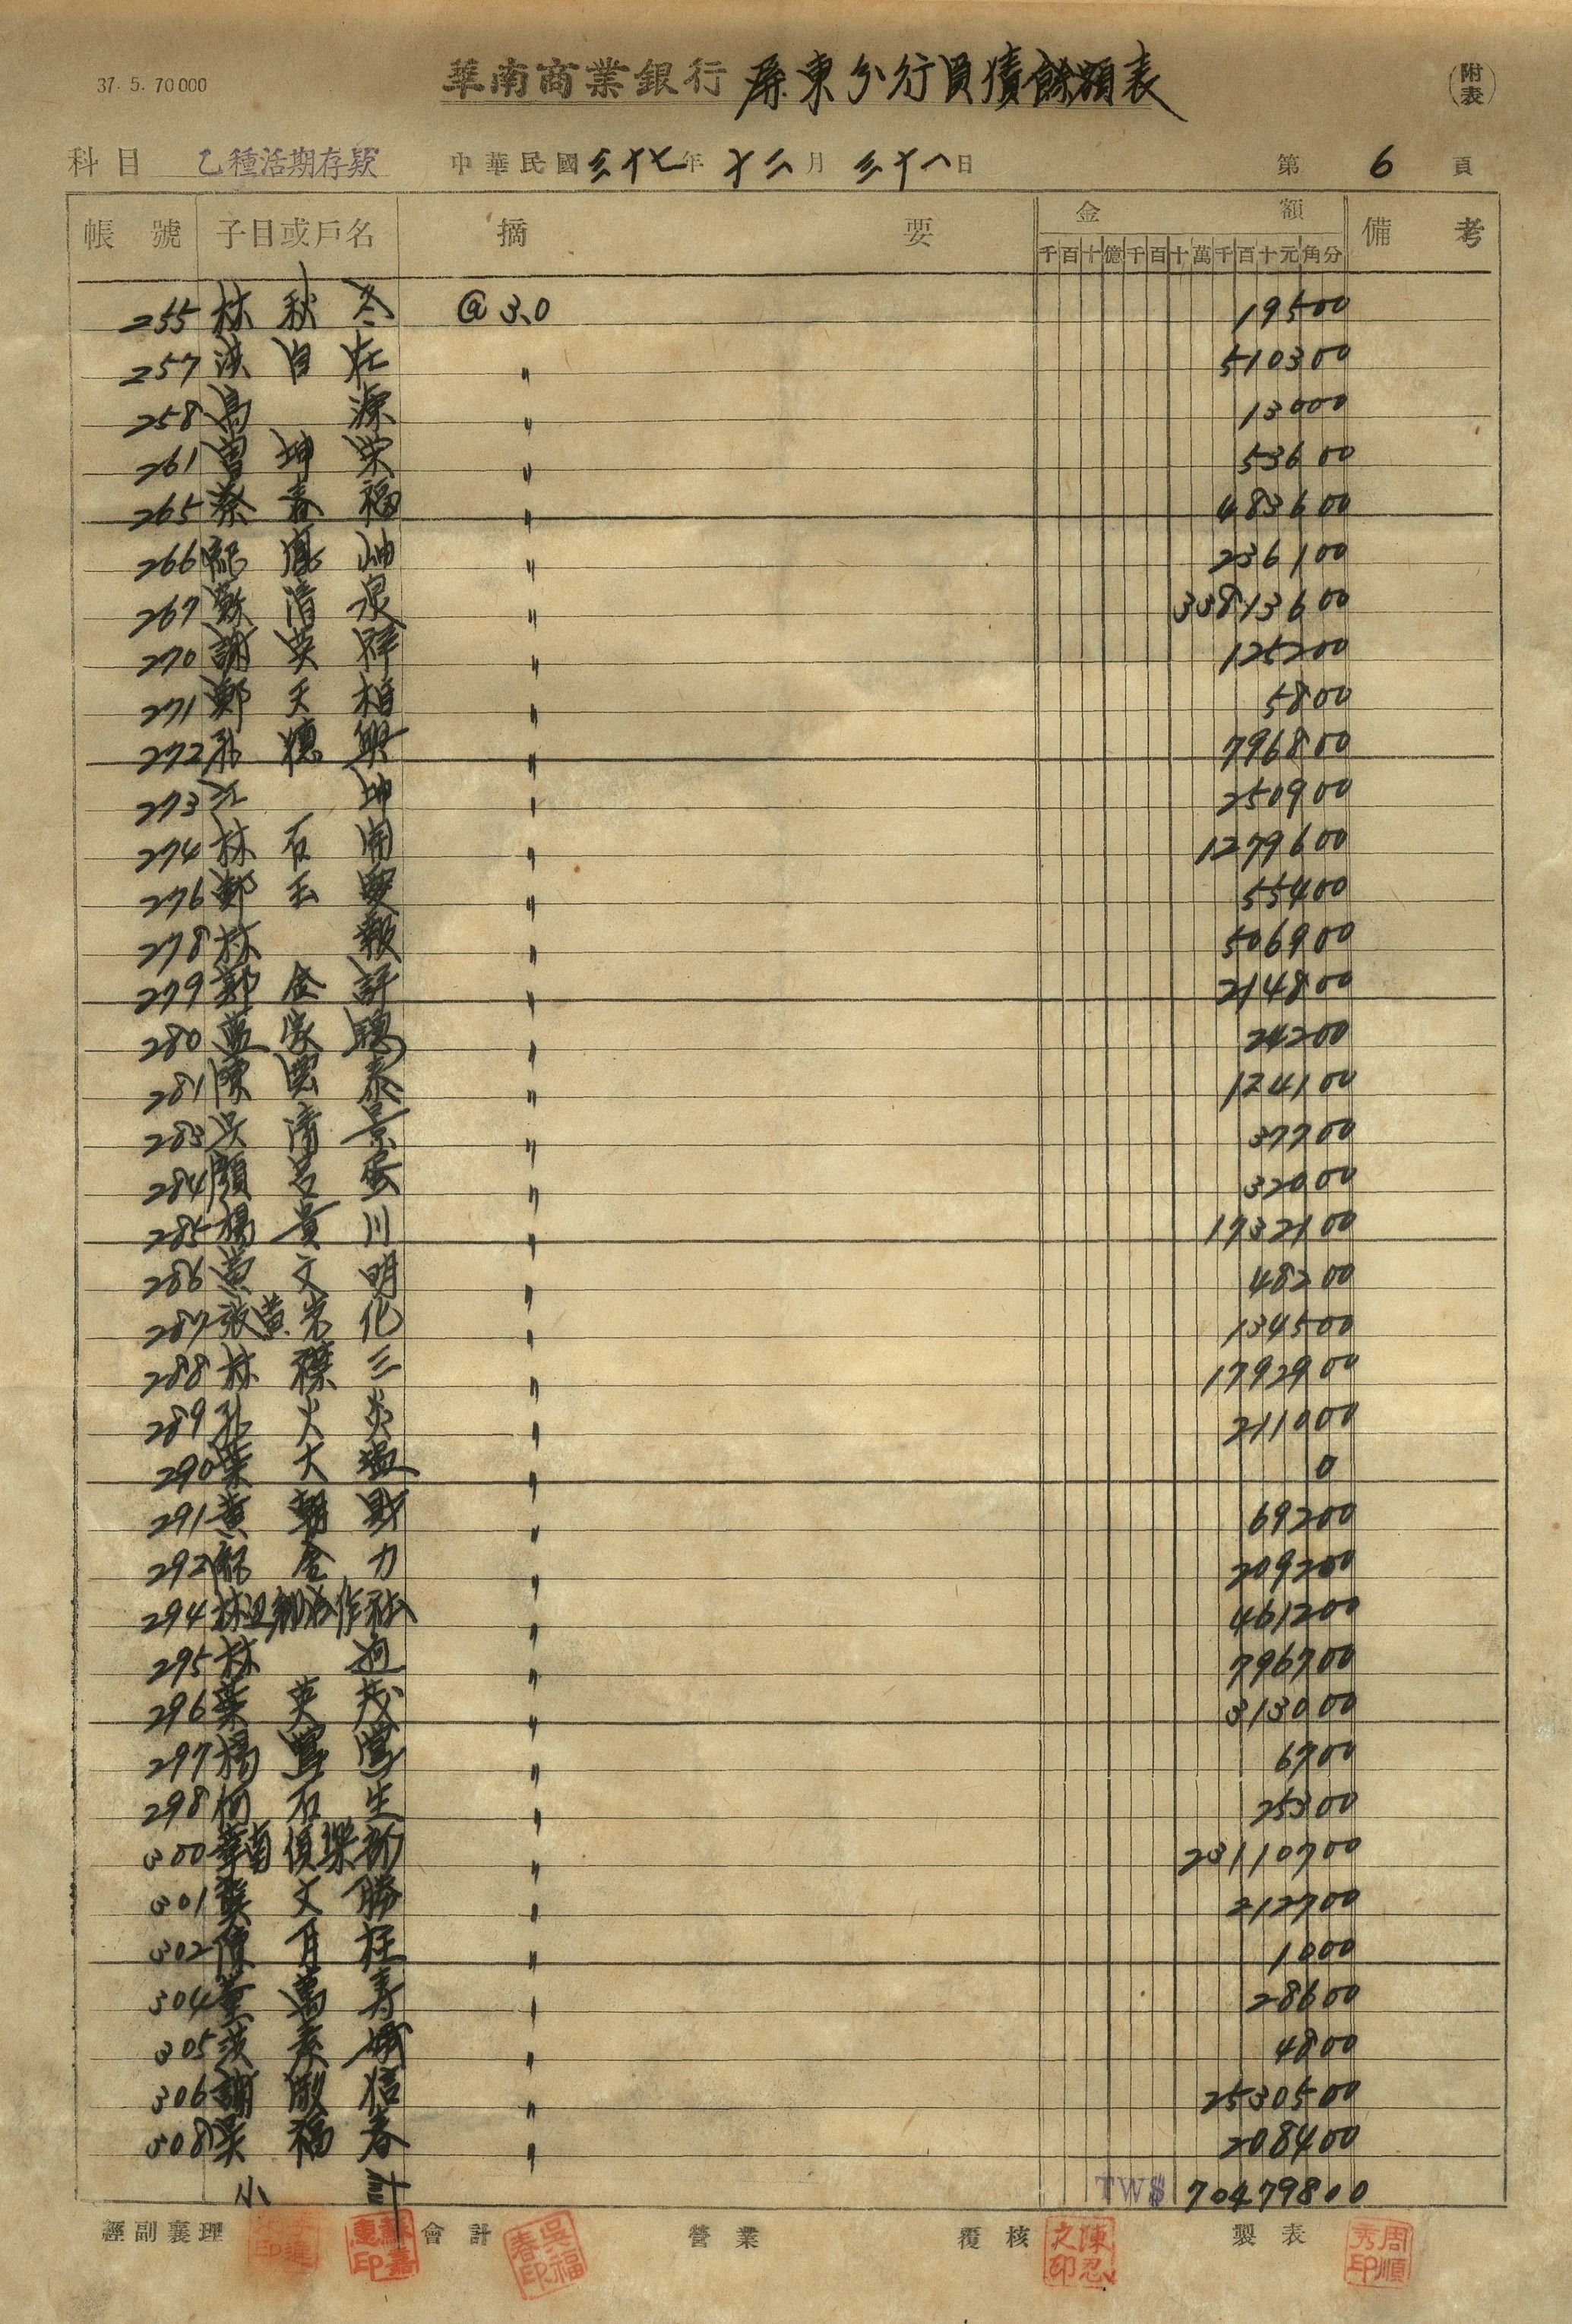 37. 5. 70000
華南商業銀行 屏東分行負債餘額表
(附表)
科目 乙種活期存款 中華民國 三十七年 十二月 三十一日 第 6 頁
帳號 子目或戶名 摘要 金額 備考
千百十億千百十萬千百十元角分
255 林秋冬 @3.0 19500
257 洪自在 〃 510300
258 源 〃 13000
261 曾坤榮 〃 53600
265 蔡春福 〃 483600
266 〃 236100
267 蘇清泉 〃 33813600
270 謝英 〃 125200
271 鄭天柏 〃 5800
272 孔德興 〃 796800
273 江坤 〃 250900
274 林石開 〃 1279600
276 鄭玉 〃 55400
278 林報 〃 506900
279 郭金評 〃 214800
280 藍家聰 〃 24200
281 陳泰 〃 124100
283 吳清景 〃 37700
284 顏 〃 32000
285 楊貴川 〃 1732100
286 黃文明 〃 48200
287 張黃 化 〃 134500
288 林三 〃 1792900
289 孔火炎 〃 211000
290 葉大 〃 0
291 黃朝財 〃 69200
292 金力 〃 209200
294 林邊 合作社 〃 461200
295 林 〃 796700
296 葉英茂 〃 313000
297 楊鶯鶯 〃 6700
298 何石生 〃 25300
300 華南俱樂部 〃 23110700
301 龔文勝 〃 212700
302 陳月 〃 1000
304 董萬壽 〃 28600
305 素娥 〃 4800
306 謝 信 〃 2530500
308 吳福春 〃 208400
小計 TW$ 70479800
經副襄理 會計 營業 覆核 製表
吳福春印
陳忍之印
周順秀印